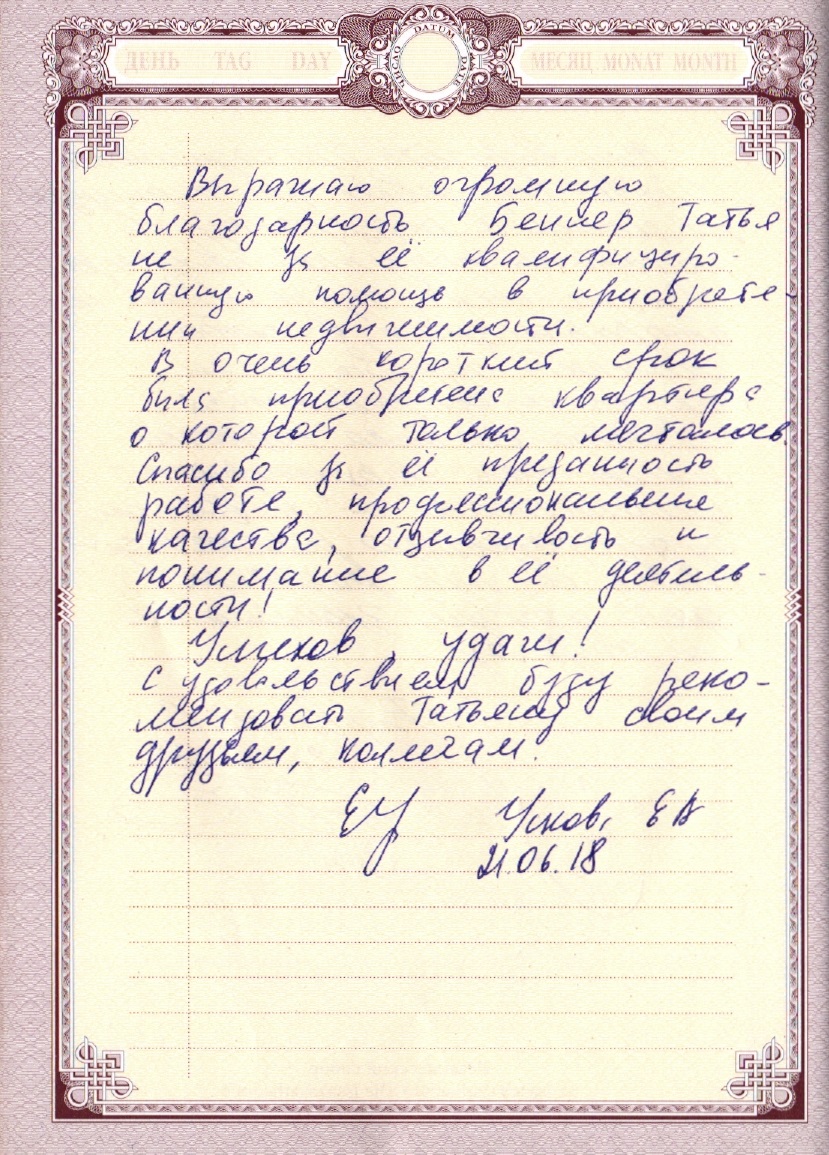 ДЕНЬ TAG DAY ЧИСЛО DATUM DATE МЕСЯЦ MONAT MONTH
Выражаю огромную
благодарность Беннер Татья
не за её квалифициро-
ванную помощь в приобрете-
нии недвижимости.
В очень короткий срок
была приобретена квартира
о которой только мечталось.
Спасибо за её преданность
работе, профессиональные
качества, отзывчивость и
понимание в её деятель-
ности!
Успехов, удачи!
С удовольствием буду реко-
мендовать Татьяну своим
друзьям, коллегам.
ЕУ Ускова ЕВ
21.06.18